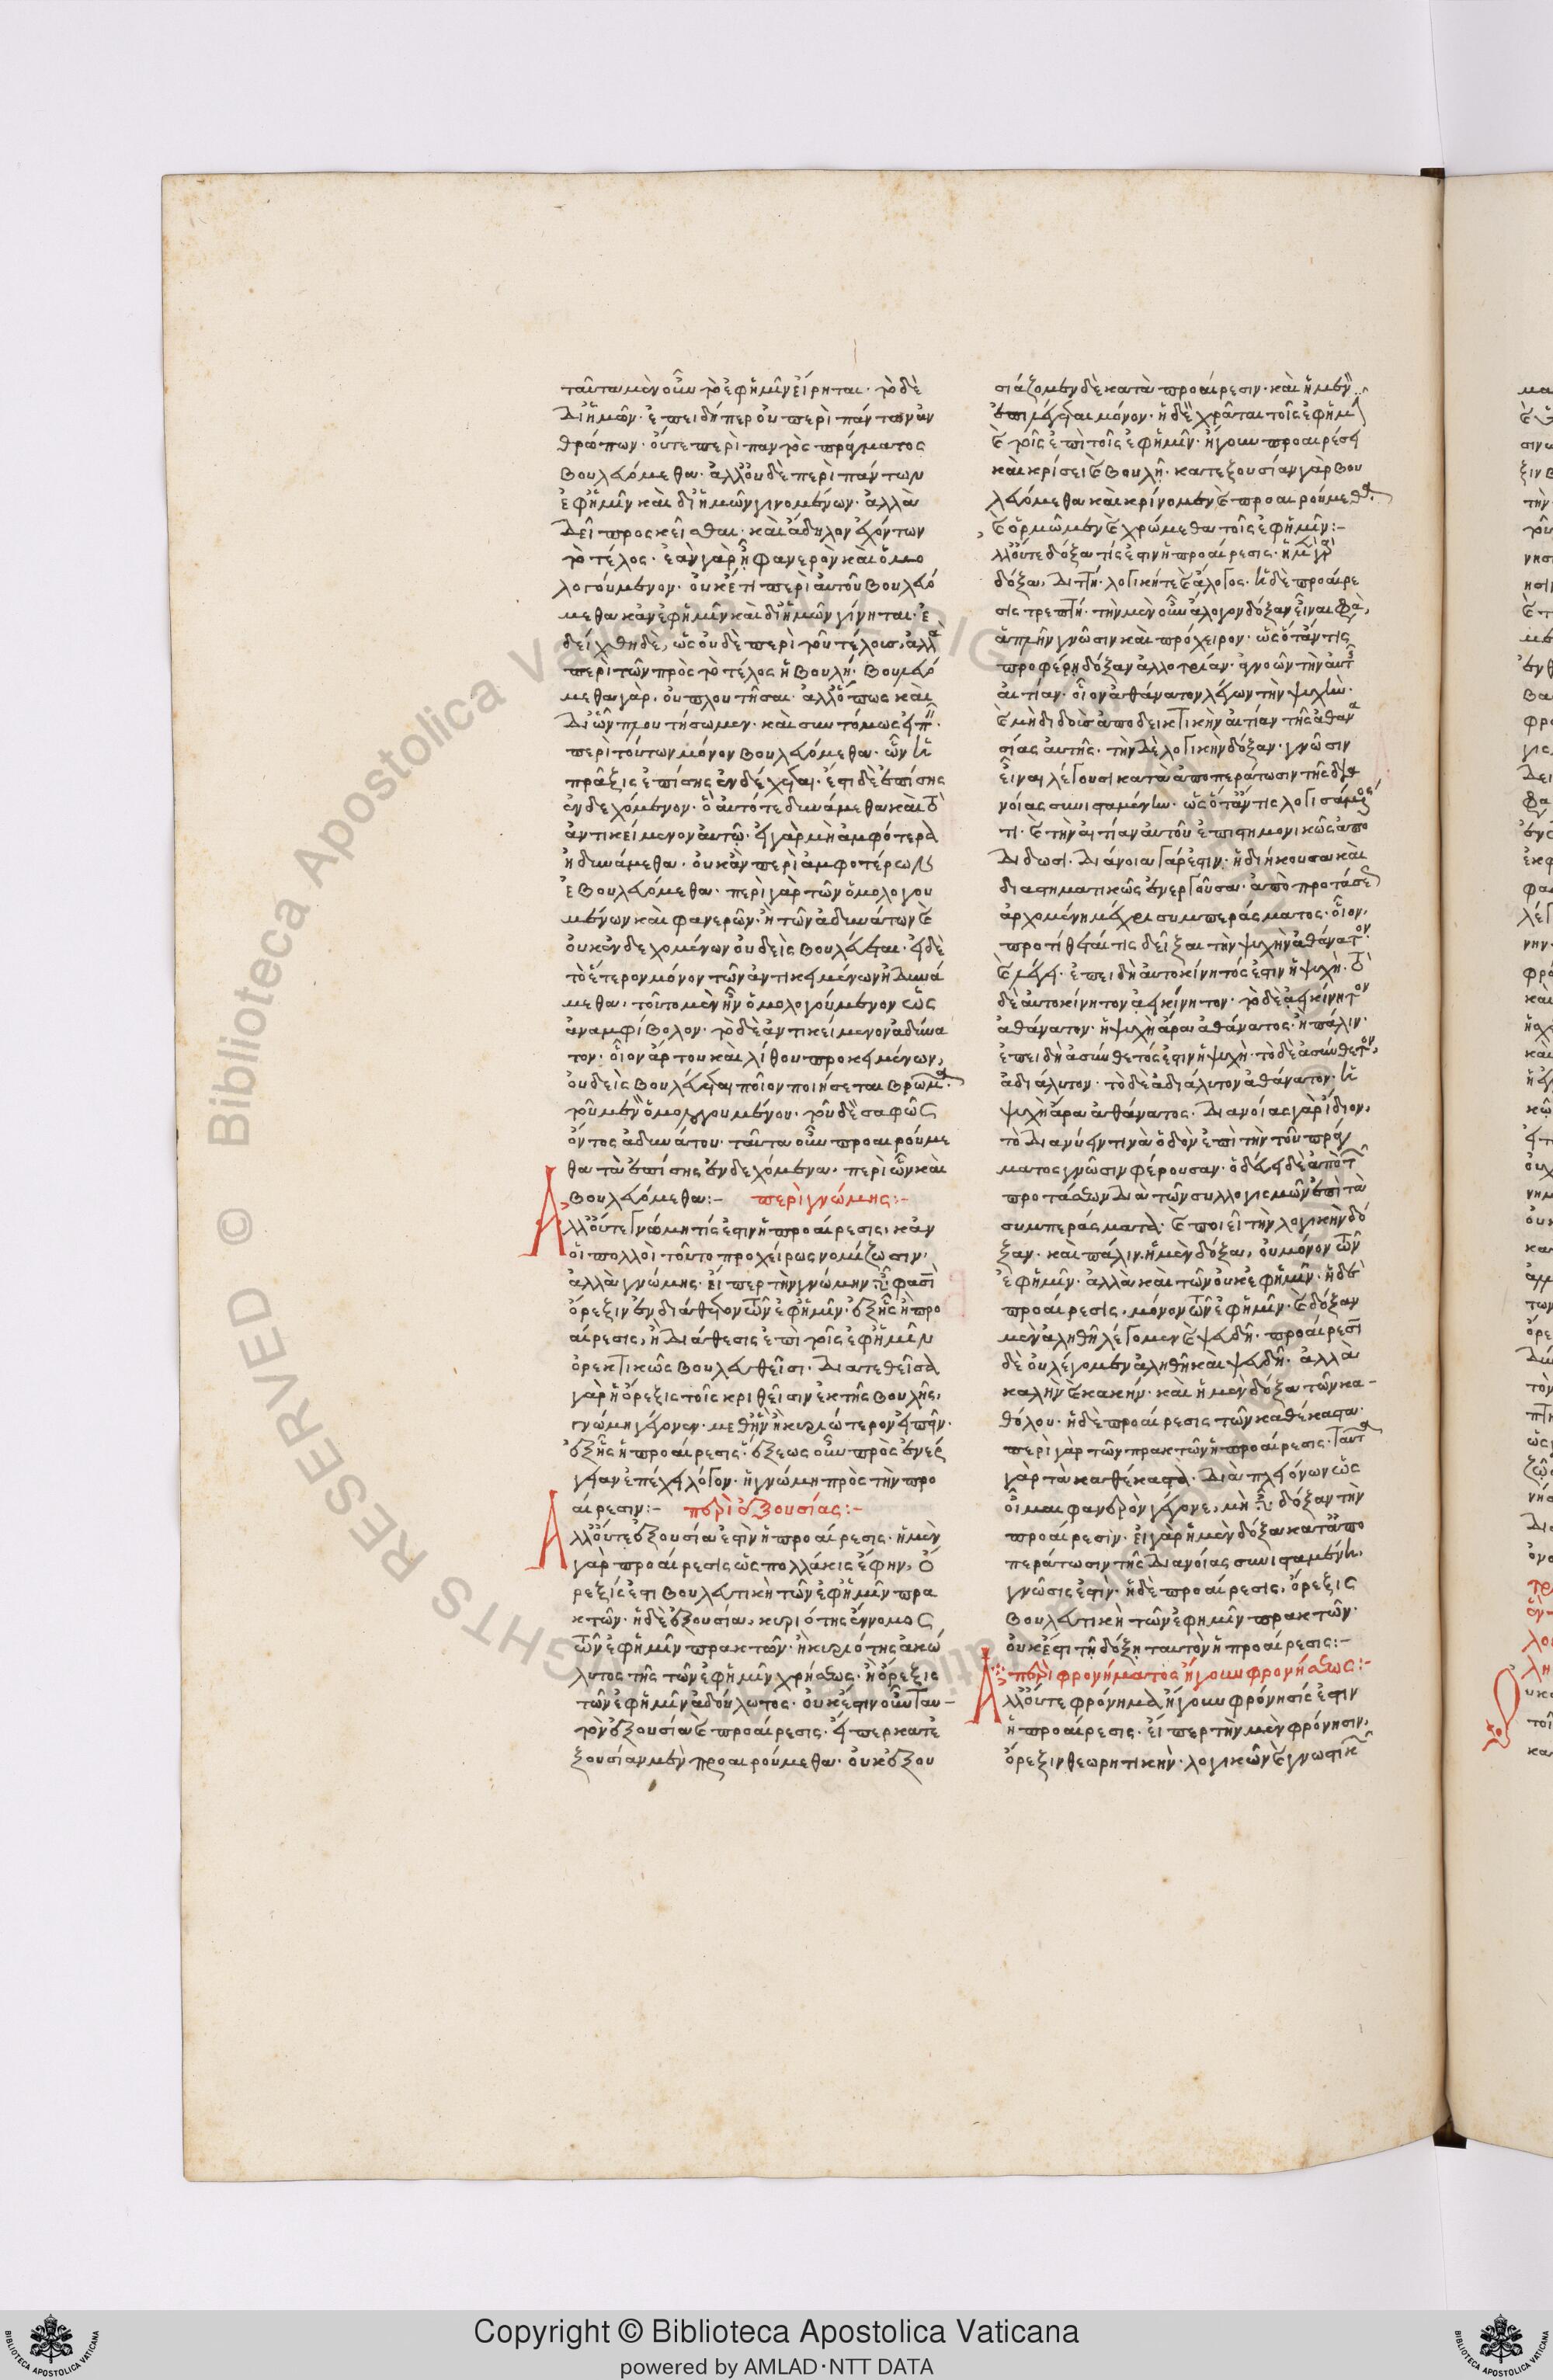 ταῦτα μὲν οὖν τὸ ἐφ ἡμῖν εἴρηται· τὸ δὲ
δι ἡμῶν· ἐπειδήπερ οὐ περὶ πάντων ἀν
θρώπων· οὔτε περὶ παντὸς πράγματος
βουλευόμεθα· ἀλλ οὐδὲ περὶ πάντων
ἐφ ἡμῖν καὶ δι ἡμῶν γινομένων· ἀλλὰ
δεῖ προσκεῖσθαι· καὶ ἄδηλον ἐχόντων
τὸ τέλος· ἐὰν γὰρ ᾖ φανερὸν καὶ ὁμο
λογούμενον· οὐκέτι περὶ αὐτοῦ βουλευό
μεθα κἂν ἐφ ἡμῖν καὶ δι ἡμῶν γίνηται· ἐ
δείχθη δὲ, ὡς οὐδὲ περὶ τοῦ τέλους, ἀλλὰ
περὶ τῶν πρὸς τὸ τέλος ἡ βουλή· βουλευό
μεθα γὰρ, οὐ πλουτῆσαι· ἀλλ ὅπως καὶ
δι ὧν πλουτήσωμεν· καὶ συντόμως εἰπ
περὶ τούτων μόνον βουλευόμεθα· ὧν ἡ
πρᾶξις ἐπίσης ἐνδέχεται· ἔστι δὲ ἐπίσης
ἐνδεχόμενον· ὃ αὐτό τε δυνάμεθα καὶ τὸ
ἀντικείμενον αὐτῷ· εἰ γὰρ μὴ ἀμφότερα
ἠδυνάμεθα· οὐκ ἂν περὶ ἀμφοτέρων
ἐβουλευόμεθα· περὶ γὰρ τῶν ὁμολογου
μένων καὶ φανερῶν· ἢ τῶν ἀδυνάτων καὶ
οὐκ ἐνδεχομένων οὐδεὶς βουλεύεται· εἰ δὲ
τὸ ἕτερον μόνον τῶν ἀντικειμένων ἠδυνά
μεθα, τοῦτο μὲν ἦν ὁμολογούμενον ὡς
ἀναμφίβολον· τὸ δὲ ἀντικείμενον ἀδύνα
τον· οἷον ἄρτου καὶ λίθου προκειμένων,
οὐδεὶς βουλεύεται ποῖον ποιήσεται βρῶμα·
τοῦ μὲν ὁμολογουμένου· τοῦ δὲ σαφῶς
ὄντος ἀδυνάτου· ταῦτα οὖν προαιρούμε
θα τὰ ἐπίσης ἐνδεχόμενα, περὶ ὧν καὶ
βουλευόμεθα:– περὶ γνώμης:–
Ἀλλ οὔτε γνώμη τίς ἐστιν ἡ προαίρεσις, κἂν
οἱ πολλοὶ τοῦτο προχείρως νομίζωσιν,
ἀλλὰ γνώμης· εἴπερ τὴν γνώμην φασὶ
ὄρεξιν ἐνδιάθετον τῶν ἐφ ἡμῖν· ἐξ ἧς ἡ προ
αίρεσις, ἢ διάθεσις ἐπὶ τοῖς ἐφ ἡμῖν
ὀρεκτικῶς βουλευθεῖσι· διατεθεῖσα
γὰρ ἡ ὄρεξις τοῖς κριθεῖσιν ἐκ τῆς βουλῆς,
γνώμη γέγονεν· μεθ ἣν ἢ κυριώτερον εἰπεῖν·
ἐξ ἧς ἡ προαίρεσις· ἕξεως οὖν πρὸς ἐνέρ
γειαν ἐπέχει λόγον· ἡ γνώμη πρὸς τὴν προ
αίρεσιν:– περὶ ἐξουσίας:–
Ἀλλ οὔτε ἐξουσία ἐστὶν ἡ προαίρεσις· ἡ μὲν
γὰρ προαίρεσις ὡς πολλάκις ἔφην, ὄ
ρεξίς ἐστι βουλευτικὴ τῶν ἐφ ἡμῖν πρα
κτῶν· ἡ δὲ ἐξουσία, κυριότης ἔννομος
τῶν ἐφ ἡμῖν πρακτῶν· ἢ κυριότης ἀκώ
λυτος τῆς τῶν ἐφ ἡμῖν χρήσεως· ἢ ὄρεξις
τῶν ἐφ ἡμῖν ἀδούλωτος· οὐκ ἔστιν οὖν ταυ–
τὸν ἐξουσία καὶ προαίρεσις· εἴπερ κατ ἐ
ξουσίαν μὲν προαιρούμεθα· οὐκ ἐξου
σιάζομεν δὲ κατὰ προαίρεσιν· καὶ ἡ μὲν
αἱρεῖται μόνον· ἡ δὲ χρᾶται τοῖς ἐφ ἡμ
καὶ τοῖς ἐπὶ τοῖς ἐφ ἡμῖν· ἤγουν προαιρέσει
καὶ κρίσει καὶ βουλῇ· κατ ἐξουσίαν γὰρ βου
λευόμεθα καὶ κρίνομεν καὶ προαιρούμεθα·
καὶ ὁρμῶμεν καὶ χρώμεθα τοῖς ἐφ ἡμῖν:–
λλ οὔτε δόξα τίς ἐστιν ἡ προαίρεσις· ἡ μὲν γὰρ
δόξα, διττή· λογική τε καὶ ἄλογος· ἡ δὲ προαίρε
σις τρεπτή· τὴν μὲν οὖν ἄλογον δόξαν εἶναι φα,
ἁπλῆν γνῶσιν καὶ πρόχειρον· ὡς ὅτάν τις
προφέρῃ δόξαν ἀλλοτρίαν· ἀγνοῶν τὴν αὐτῆς
αἰτίαν· οἷον ἀθάνατον λέγων τὴν ψυχὴν·
καὶ μὴ διδοὺς ἀποδεικτικὴν αἰτίαν τῆς ἀθανα
σίας αὐτῆς· τὴν δὲ λογικὴν δόξαν· γνῶσιν
εἶναι λέγουσι κατὰ ἀποπεράτωσιν τῆς δια
νοίας συνισταμένην· ὡς ὅτάν τις λογισάμενός
τι· καὶ τὴν αἰτίαν αὐτοῦ ἐπιστημονικῶς ἀπο
δίδωσι· διάνοια γάρ ἐστιν· ἡ διήκουσα καὶ
διαστηματικῶς ἐνεργοῦσα· ἀπὸ προτάσε
ἀρχομένη μέχρι συμπεράσματος· οἷον,
προτίθεταί τις δεῖξαι τὴν ψυχὴν ἀθάνατον·
καὶ λέγει· ἐπειδὴ αὐτοκίνητός ἐστιν ἡ ψυχὴ· τὸ
δὲ αὐτοκίνητον ἀεικίνητον· τὸ δὲ ἀεικίνητον
ἀθάνατον· ἡ ψυχὴ ἄρα ἀθάνατος· ἢ πάλιν·
ἐπειδὴ ἀσύνθετός ἐστιν ἡ ψυχὴ· τὸ δὲ ἀσύνθετον,
ἀδιάλυτον· τὸ δὲ ἀδιάλυτον ἀθάνατον· ἡ
ψυχὴ ἄρα ἀθάνατος· διανοίας γὰρ ἴδιον,
τὸ διανύειν τινὰ ὁδὸν ἐπὶ τὴν τοῦ πράγ
ματος γνῶσιν φέρουσαν· ὁδεύει δὲ ἀπὸ τῶν
προτάσεων διὰ τῶν συλλογισμῶν ἐπὶ τὰ
συμπεράσματα· καὶ ποιεῖ τὴν λογικὴν δό
ξαν· καὶ πάλιν· ἡ μὲν δόξα, οὐ μόνον τῶν
ἐφ ἡμῖν· ἀλλὰ καὶ τῶν οὐκ ἐφ ἡμῖν· ἡ δὲ
προαίρεσις, μόνον τῶν ἐφ ἡμῖν· καὶ δόξαν
μὲν ἀληθῆ λέγομεν καὶ ψευδῆ· προαίρεσιν
δὲ οὐ λέγομεν ἀληθῆ καὶ ψευδῆ· ἀλλὰ
καλὴν καὶ κακήν· καὶ ἡ μὲν δόξα τῶν κα–
θόλου· ἡ δὲ προαίρεσις τῶν καθέκαστα·
περὶ γὰρ τῶν πρακτῶν ἡ προαίρεσις· ταῦτα
γὰρ τὰ καθέκαστα· διὰ πλειόνων ὡς
οἶμαι φανερὸν γέγονε, μὴ εἶναι δόξαν τὴν
προαίρεσιν· εἰ γὰρ ἡ μὲν δόξα κατὰ ἀπο
περάτωσιν τῆς διανοίας συνισταμένη,
γνῶσις ἐστιν· ἡ δὲ προαίρεσις, ὄρεξις
βουλευτικὴ τῶν ἐφ ημῖν πρακτῶν·
οὐκ ἔστι τῇ δόξῃ ταυτὸν ἡ προαίρεσις:–
περὶ φρονήματος ἤγουν φρονήσεως:–
Ἀλλ οὔτε φρόνημα ἤγουν φρόνησίς ἐστιν
ἡ προαίρεσις· εἴπερ τὴν μὲν φρόνησιν,
ὄρεξιν θεωρητικὴν· λογικῶν καὶ γνωστικ
Copyright © Biblioteca Apostolica Vaticana
powered by AMLAD·NTT DATA